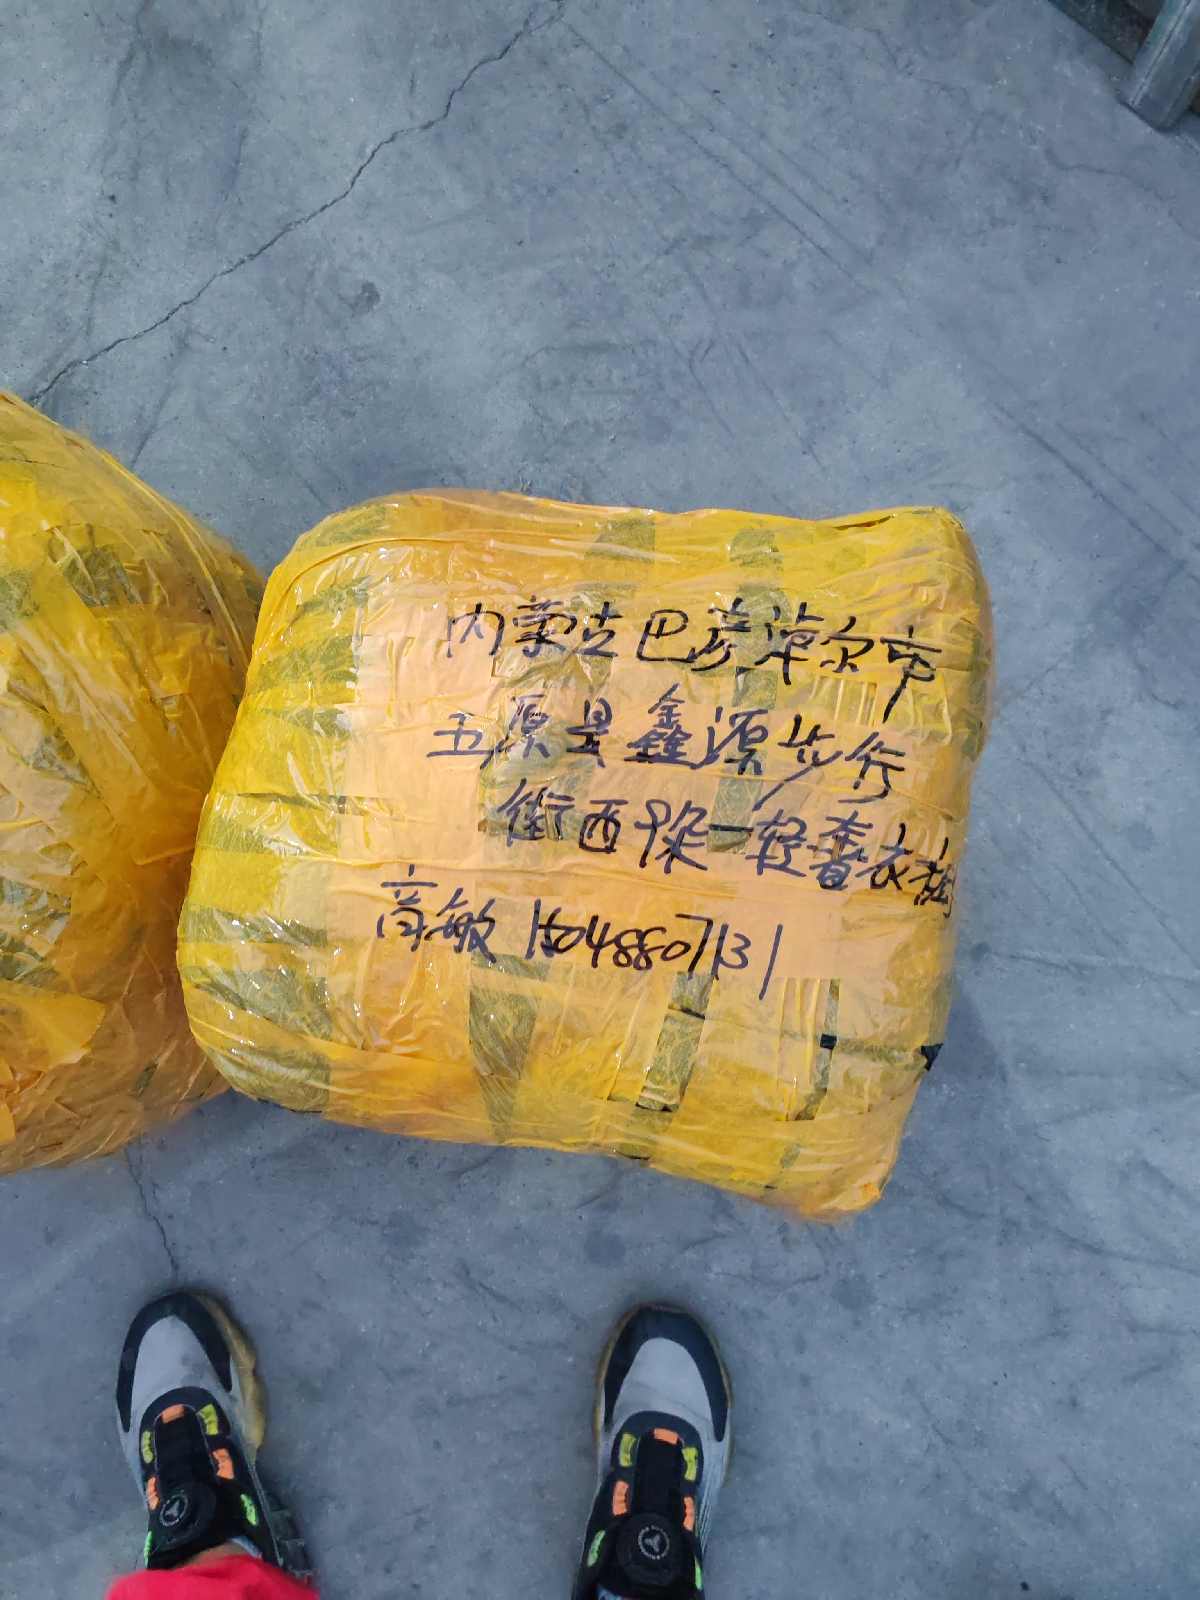 内蒙古巴彦淖尔市
五原县鑫源步行
街西中染一轻奢衣橱
高敏 15048807131